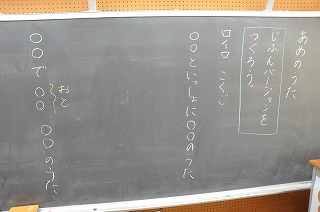 あめのうた
じぶんバージョンを
つくろう。
ロイロ こくご
〇〇といっしょに〇〇のうた
〇〇で 〇〇 〇〇のうた
おと